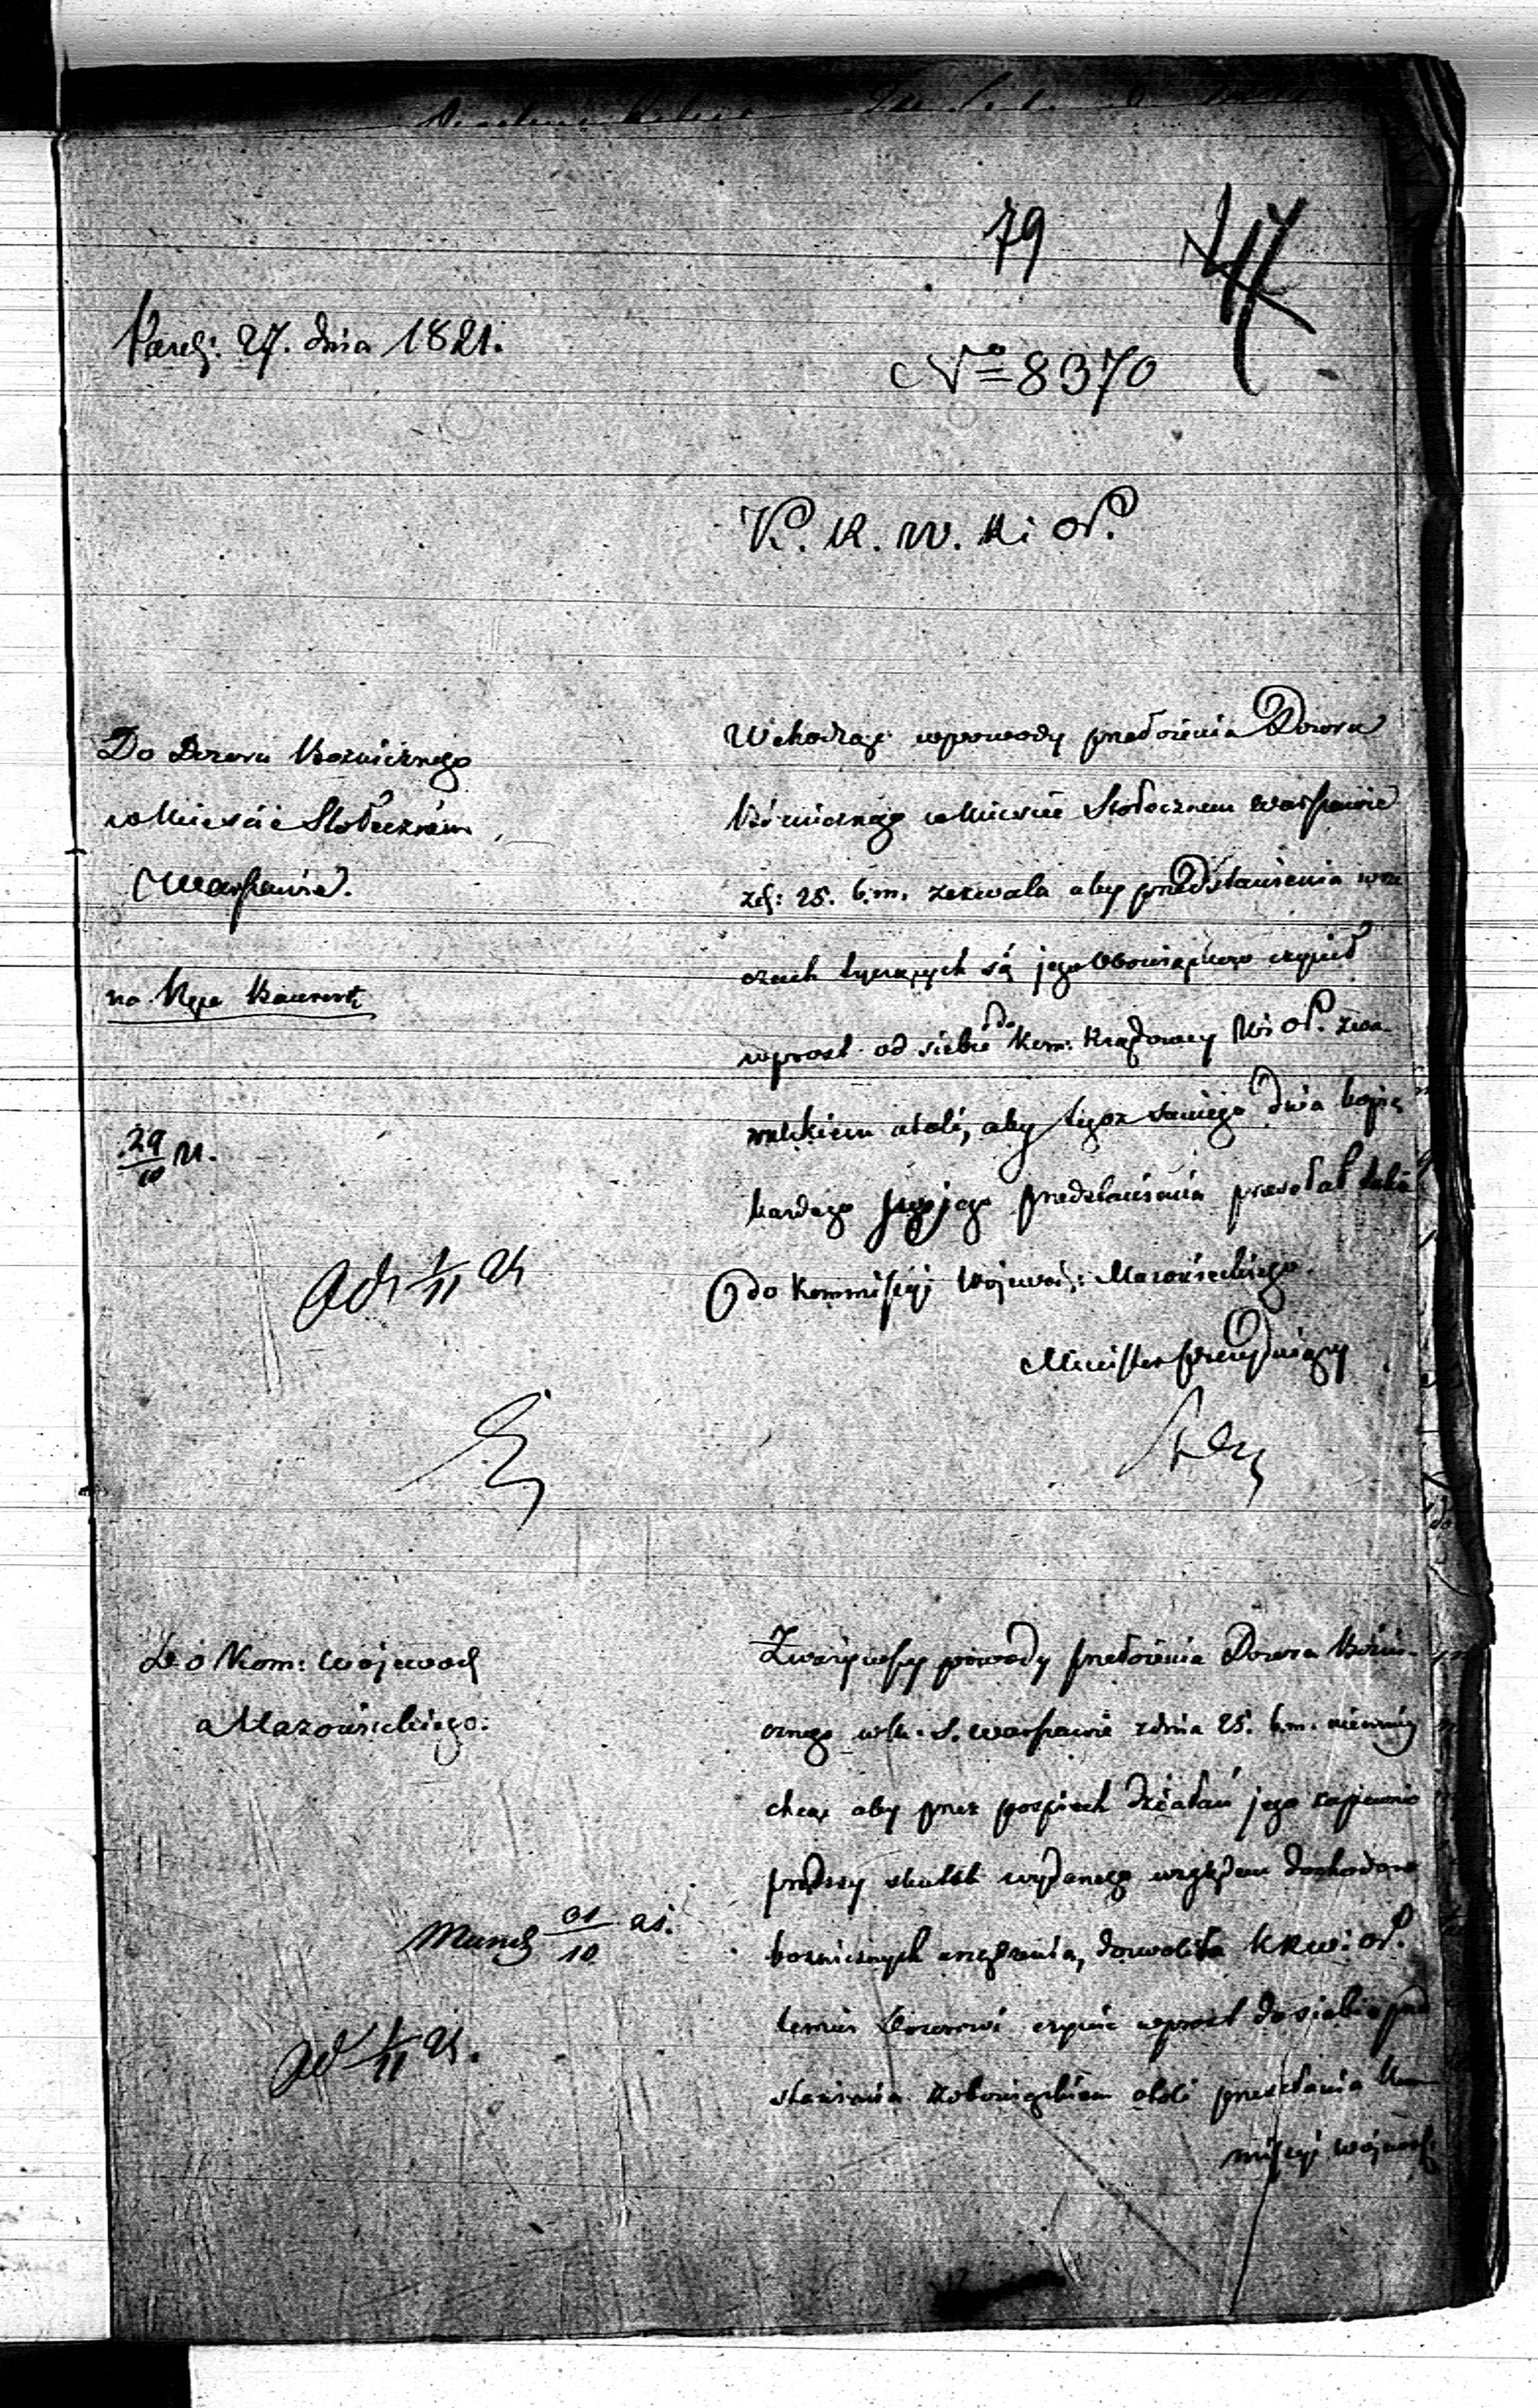 79
Paźdź: 27. dnia 1821.
№ 8370
K. R. W. R. i O. P.
Do Dozoru Bożnicznego
w Mieście Stołecznem
Warszawie.
na ręce
29/10 21.
Wchodząc w powody przełożenia Dozoru
Bożnicznego w Mieście Stołecznem Warszawie
zd: 25. b. m. zezwala aby przedstawienia w rze
czach tyczących się jego obowiązków czynił
wprost od siebie do Kom: Rządowey W. i O. P. z wa-
runkiem atoli, aby tegoż samego dnia kopią
każdego swojego przedstawienia przesłał także
do Kommissyi Wojewódz: Mazowieckiego.
Minister Prezyduiący
Ad 1/11 21
Do Kom: Wojewodz
Mazowieckiego.
31/10 21.
Ad 1/11 21.
Zważywszy powody przełożenia Dozoru Bożni-
cznego w M. S. Warszawie z dnia 25. b. m. niemniey
chcąc aby przez pospiech działań jego zapewnić
prędszy skutek wydanego względem dochodów
bożnicznych urządzenia, dozwoliła K R W. i O. P.
temuż Dozorowi czynić wprost do siebie przed
stawienia z obowiązkiem atoli przesłania Kom
missyi Wojewódz: